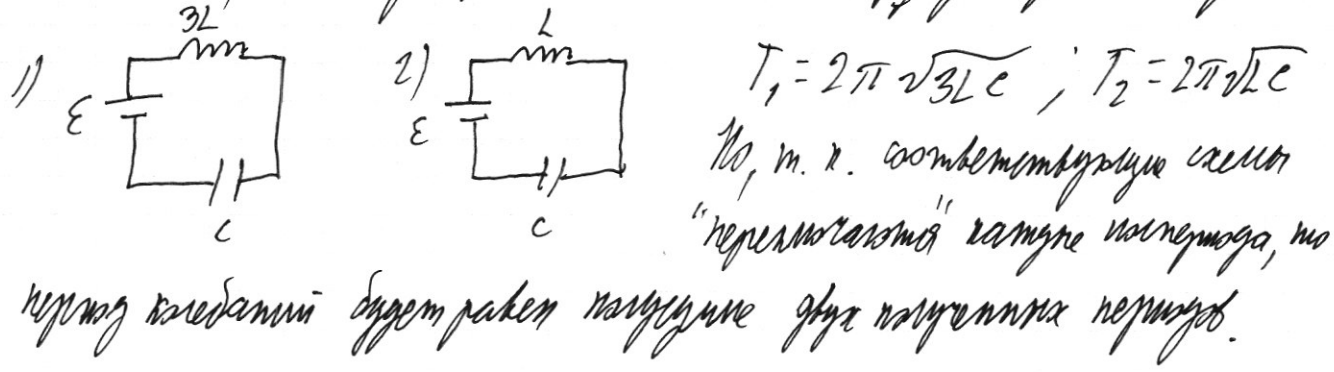 3L
L
1)
2)
T₁ = 2π √3LC ; T₂ = 2π√LC
ε
ε
Но, т. к. соответствующие схемы
C
C
"переключаются" каждые полпериода, то
период колебаний будет равен полусумме двух полученных периодов.